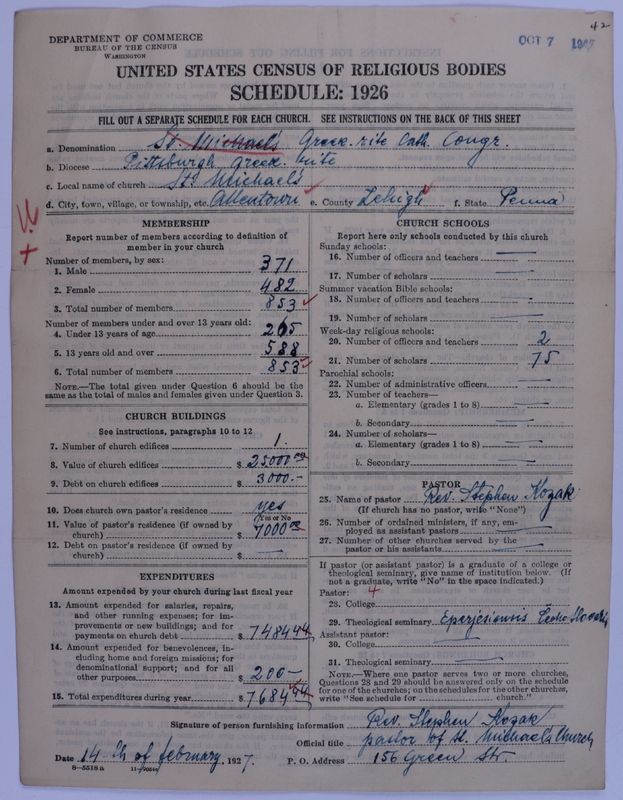 42
DEPARTMENT OF COMMERCE
BUREAU OF THE CENSUS
WASHINGTON
OCT 7 1927
UNITED STATES CENSUS OF RELIGIOUS BODIES
SCHEDULE: 1926
FILL OUT A SEPARATE SCHEDULE FOR EACH CHURCH. SEE INSTRUCTIONS ON THE BACK OF THIS SHEET
a. Denomination St. Michael's Greek rite Cath. Congr.
b. Diocese Pittsburgh Greek rite
c. Local name of church St. Michael's
d. City, town, village, or township, etc. Allentown e. County Lehigh f. State Penna
MEMBERSHIP
Report number of members according to definition of
member in your church
Number of members, by sex:
1. Male 371
2. Female 482
3. Total number of members 853
Number of members under and over 13 years old:
4. Under 13 years of age 265
5. 13 years old and over 588
6. Total number of members 853
NOTE.—The total given under Question 6 should be the
same as the total of males and females given under Question 3.
CHURCH BUILDINGS
See instructions, paragraphs 10 to 12
7. Number of church edifices 1.
8. Value of church edifices $ 25000 00
9. Debt on church edifices $ 3000.-
10. Does church own pastor's residence yes
(Yes or No)
11. Value of pastor's residence (if owned by
church) $ 7000 00
12. Debt on pastor's residence (if owned by
church) $ —
EXPENDITURES
Amount expended by your church during last fiscal year
13. Amount expended for salaries, repairs,
and other running expenses; for im-
provements or new buildings; and for
payments on church debt $ 7484 44
14. Amount expended for benevolences, in-
cluding home and foreign missions; for
denominational support; and for all
other purposes $ 200—
15. Total expenditures during year $ 7684 44
CHURCH SCHOOLS
Report here only schools conducted by this church
Sunday schools:
16. Number of officers and teachers —
17. Number of scholars —
Summer vacation Bible schools:
18. Number of officers and teachers —
19. Number of scholars —
Week-day religious schools:
20. Number of officers and teachers 2
21. Number of scholars 75
Parochial schools:
22. Number of administrative officers —
23. Number of teachers—
a. Elementary (grades 1 to 8) —
b. Secondary —
24. Number of scholars—
a. Elementary (grades 1 to 8) —
b. Secondary —
PASTOR
25. Name of pastor Rev. Stephen Kozak
(If church has no pastor, write "None")
26. Number of ordained ministers, if any, em-
ployed as assistant pastors —
27. Number of other churches served by the
pastor or his assistants —
If pastor (or assistant pastor) is a graduate of a college or
theological seminary, give name of institution below. (If
not a graduate, write "No" in the space indicated.)
Pastor: 4
28. College
29. Theological seminary Eperjesiensis
Assistant pastor:
30. College —
31. Theological seminary —
NOTE.—Where one pastor serves two or more churches,
Questions 28 and 29 should be answered only on the schedule
for one of the churches; on the schedules for the other churches,
write "See schedule for church."
Signature of person furnishing information Rev. Stephen Kozak
Official title pastor of St. Michael's Church
Date 14th of february, 1927. P. O. Address 156 Green Str.
8—5518a